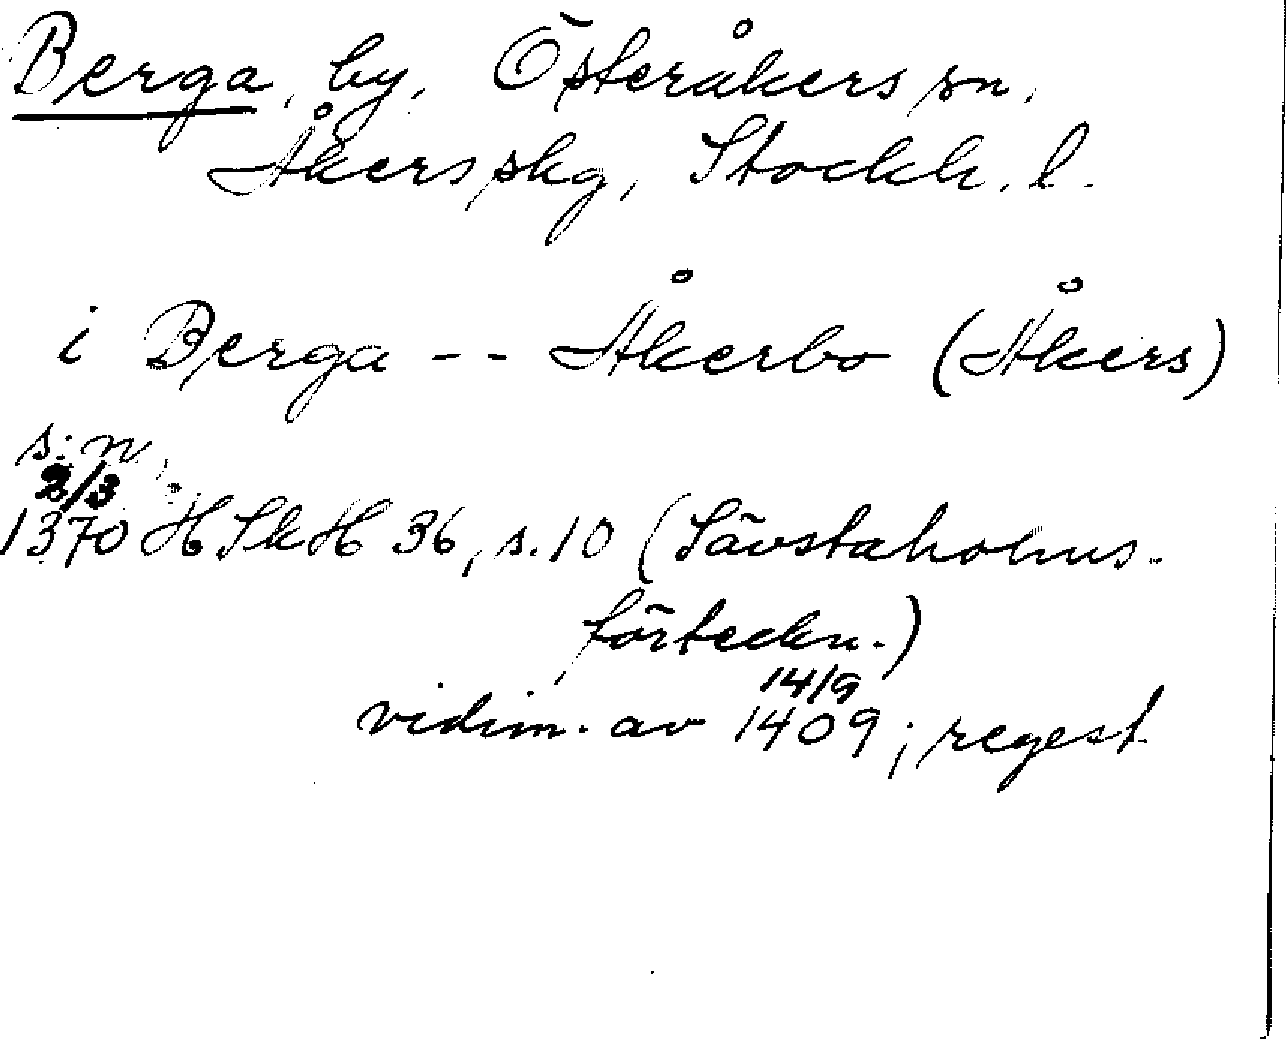 Berga, by, Österåkers sn,
Åkers skg, Stockh. l.
i Berga -- Åkerbo (Åkers)
s:n,
2/3
1370 HSkH 36, s. 10 (Sävstaholms-
förteckn.)
14/9
vidim. av 1409; regest